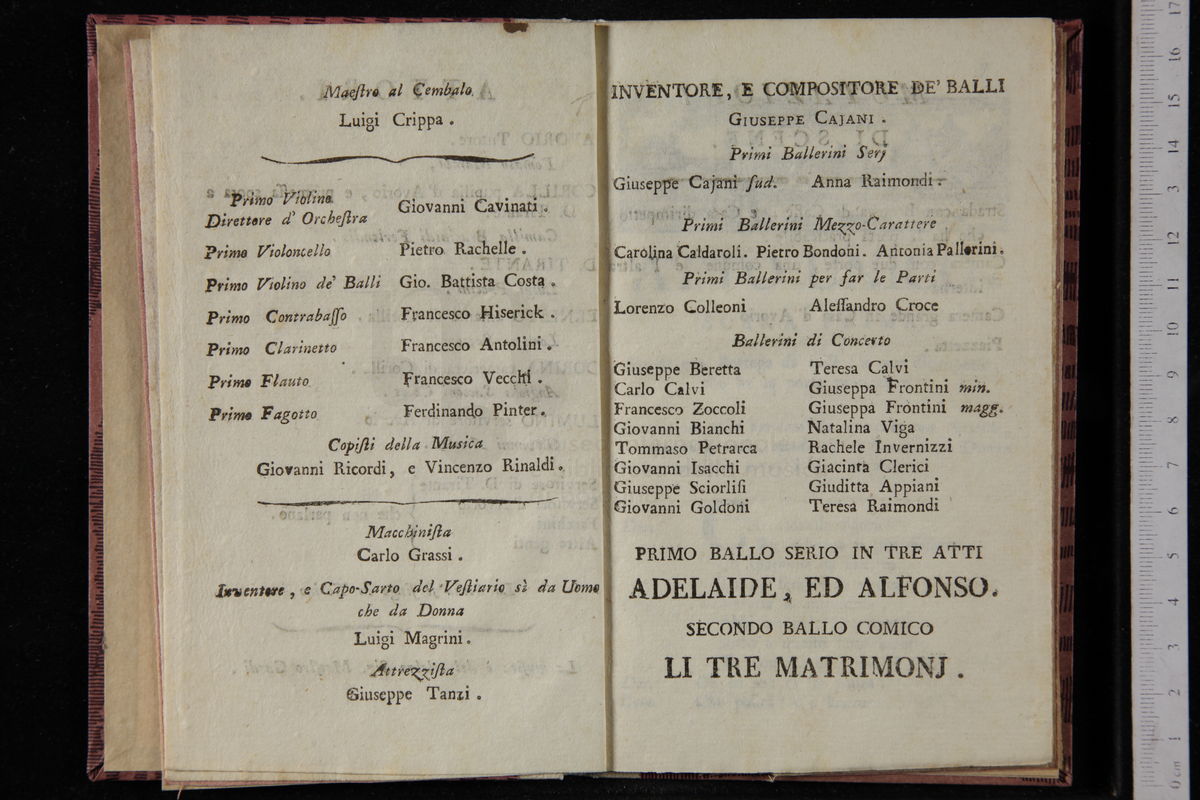 Maeſtro al Cembalo
Luigi Crippa .
Primo Violino
Direttore d' Orcheſtra
Giovanni Cavinati .
Primo Violoncello Pietro Rachelle .
Primo Violino de' Balli Gio. Battista Costa .
Primo Contrabaſſo Francesco Hiserick .
Primo Clarinetto Francesco Antolini .
Primo Flauto Francesco Vecchi .
Primo Fagotto Ferdinando Pinter .
Copiſti della Musica
Giovanni Ricordi , e Vincenzo Rinaldi .
Macchiniſta
Carlo Grassi .
Inventore , e Capo-Sarto del Veſtiario sì da Uomo
che da Donna
Luigi Magrini .
Attrezziſta
Giuseppe Tanzi .
INVENTORE, E COMPOSITORE DE' BALLI
GIUSEPPE CAJANI .
Primi Ballerini Serj
Giuseppe Cajani ſud. Anna Raimondi .
Primi Ballerini Mezzo-Carattere
Carolina Caldaroli . Pietro Bondoni . Antonia Pallerini .
Primi Ballerini per far le Parti
Lorenzo Colleoni Aleſſandro Croce
Ballerini di Concerto
Giuseppe Beretta Teresa Calvi
Carlo Calvi Giuseppa Frontini min.
Francesco Zoccoli Giuseppa Frontini magg.
Giovanni Bianchi Natalina Viga
Tommaso Petrarca Rachele Invernizzi
Giovanni Isacchi Giacinta Clerici
Giuseppe Sciorliſi Giuditta Appiani
Giovanni Goldoni Teresa Raimondi
PRIMO BALLO SERIO IN TRE ATTI
ADELAIDE, ED ALFONSO.
SECONDO BALLO COMICO
LI TRE MATRIMONJ .
0 cm 1 2 3 4 5 6 7 8 9 10 11 12 13 14 15 16 17